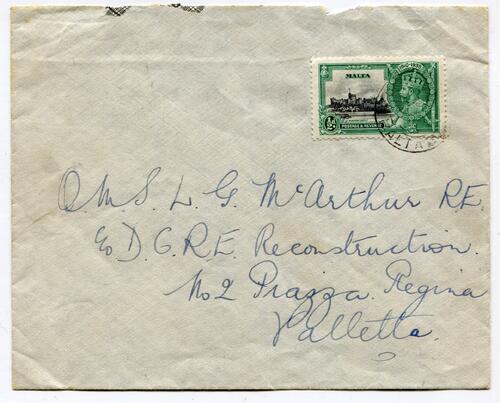 1910-1935
MALTA
½d
POSTAGE & REVENUE
MALTA
Q.M.S. L. G. McArthur R.E.
c/o D.C.R.E. Reconstruction.
No 2 Piazza Regina
Valletta.